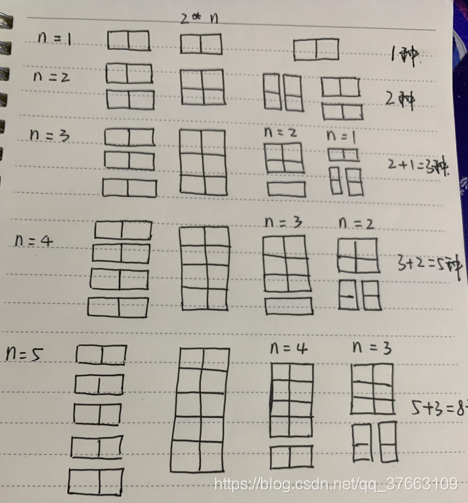 2 * n
n=1 1种
n=2 2种
n=3 n=2 n=1 2+1=3种
n=4 n=3 n=2 3+2=5种
n=5 n=4 n=3 5+3=8
https://blog.csdn.net/qq_37663109